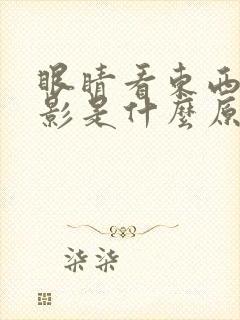 眼睛看東西
影是什麼原
柒柒